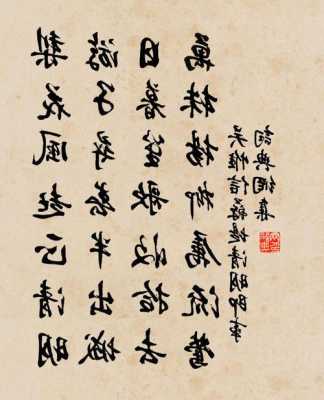 梨花風起正清明
游子尋春半出城
日暮笙歌收拾去
萬株楊柳屬流鶯
吴惟信蘇堤清明即事
詞典網集